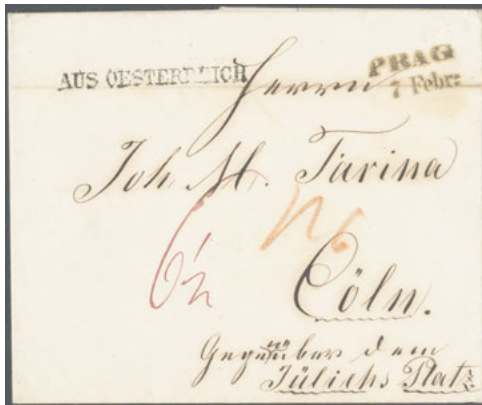 AUS OESTERREICH
PRAG
7 Febr:
Herrn
Joh. M. Farina
Cöln.
Gegenüber dem
Jülichs Platz